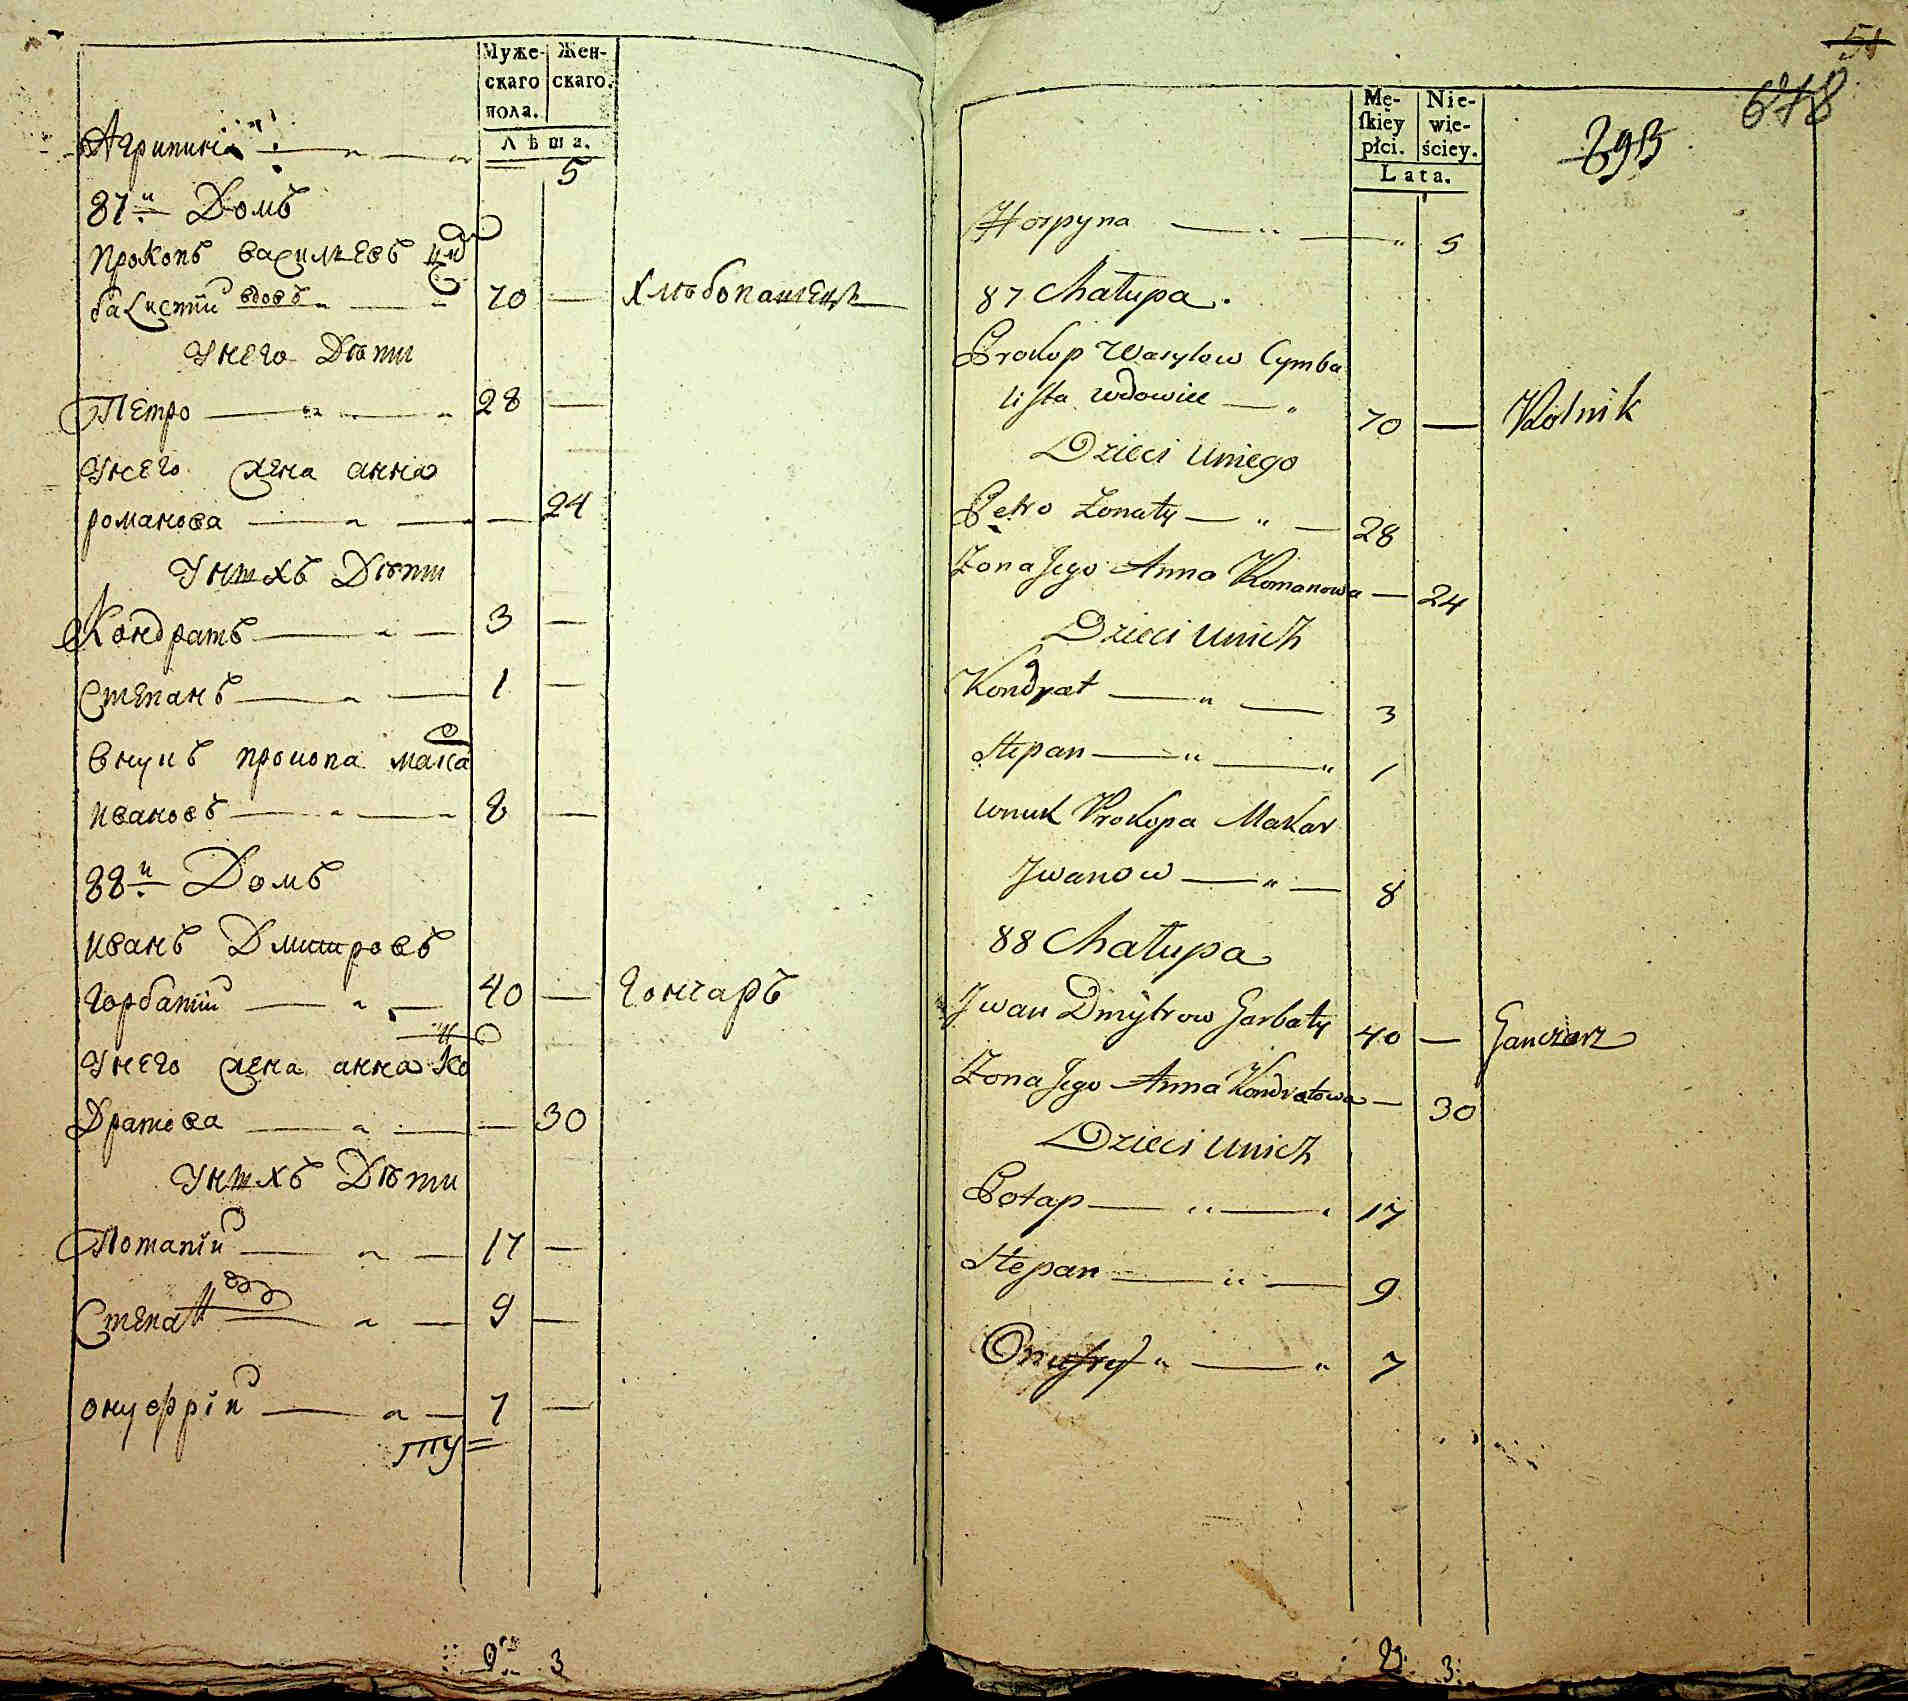 Муже-
скаго
пола.
Жен-
скаго.
Лѣта.
Агрипина 5
87й Домъ
Прокопъ васильевъ цим
балистий вдовъ 70 — хлѣбопашецъ
У него Дѣти
Петро 28 —
У него жена анна
романова — 24
У нихъ Дѣти
Кондратъ 3 —
Степанъ 1 —
внукъ прокопа мака
ивановъ 8 —
88й Домъ
иванъ Дмитровъ
Горбатий 40 — Гончаръ
У него жена анна Кон
Дратова — 30
У нихъ Дѣти
Потапій 17 —
Степан 9 —
онуфрій 7 —
9 3
51
678
Mę-
ſkiey
płci.
Nie-
wie-
ściey.
Lata.
Horpyna 5
87 Chałupa.
Prokop Wasylow Cymba
lista wdowiec 70 — Rolnik
Dzieci u niego
Petro Żonaty 28
Żona Jego Anna Romanowa — 24
Dzieci u nich
Kondrat 3
Stepan 1
wnuk Prokopa Makar
Jwanow 8
88 Chałupa
Jwan Dmytrow Garbaty 40 — Ganczarz
Żona Jego Anna Kondratowa — 30
Dzieci u nich
Potap 17
Stepan 9
Onufry 7
9. 3.